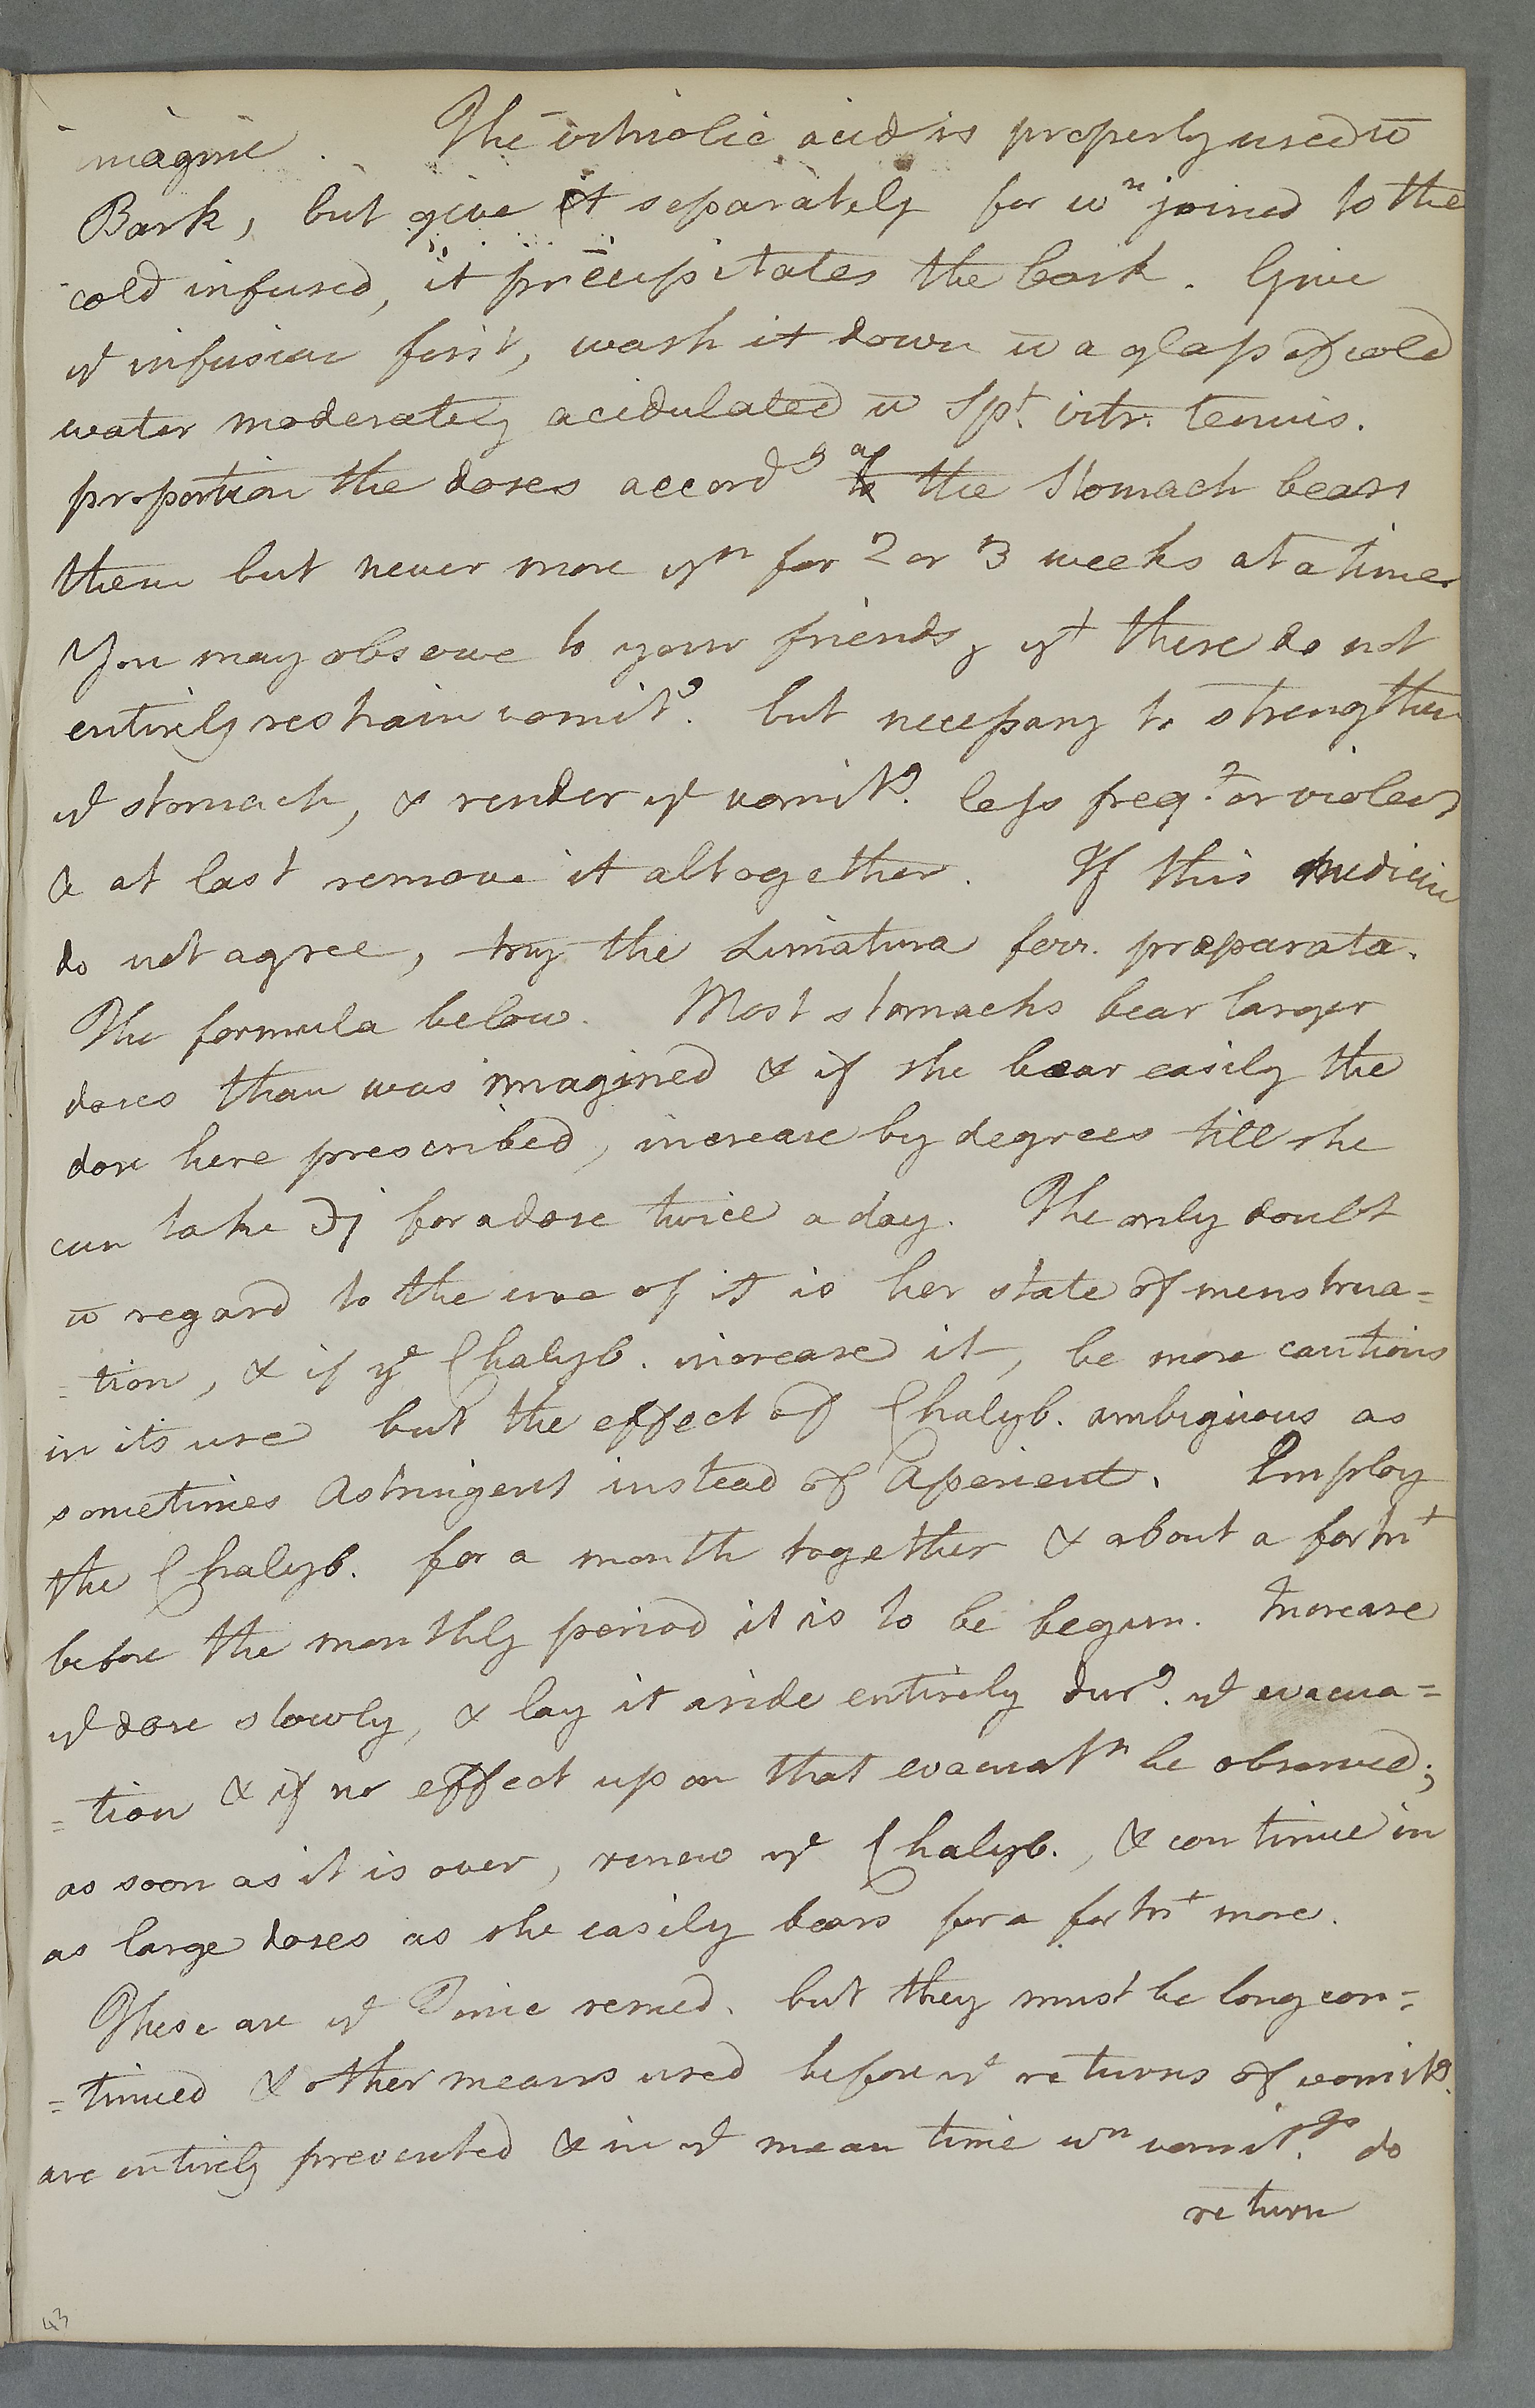 imagine. The vitriolic acid is properly used w̄
Bark, but give it separately for wn joined to the
cold infused, it precipitates the bark. Give
ye infusion first, wash it down w̄ a glass of cold
water moderately acidulated w̄ Spt. vitr. tenuis.
proportion the doses accordg as the stomach bears
them but never more yn for 2 or 3 weeks at a time.
You may observe to your friends, yt these do not
entirely restrain vomitg. but necessary to strengthen
ye stomach, & render ye vomitg. less freqt. or violent
& at last remove it altogether. If this medicine
do not agree, try the Limatura ferr. præparata.
The formula below. Most stomachs bear larger
doses than was imagined & if she bear easily the
dose here prescribed, increase by degrees till she
can take ℈j for a dose twice a day. The only doubt
w̄ regard to the use of it is her state of menstrua=
=tion, & if ye Chalyb. increase it, be more cautious
in its use but the effect of Chalyb. ambiguous as
sometimes Astringent instead of Aperient. Employ
the Chalyb. for a month together & about a fortnt
before the monthly period it is to be begun. Increase
ye dose slowly, & lay it aside entirely durg. ye evacua=
=tion & if no effect upon that evacuatn be observed;
as soon as it is over, renew ye Chalyb., & continue in
as large doses as she easily bears for a fortnt more.
These are ye Tonic remed. but they must be long con=
=tinued & other means used before ye returns of vomitg.
are entirely prevented & in ye mean time wn vomit.gs do
return
43